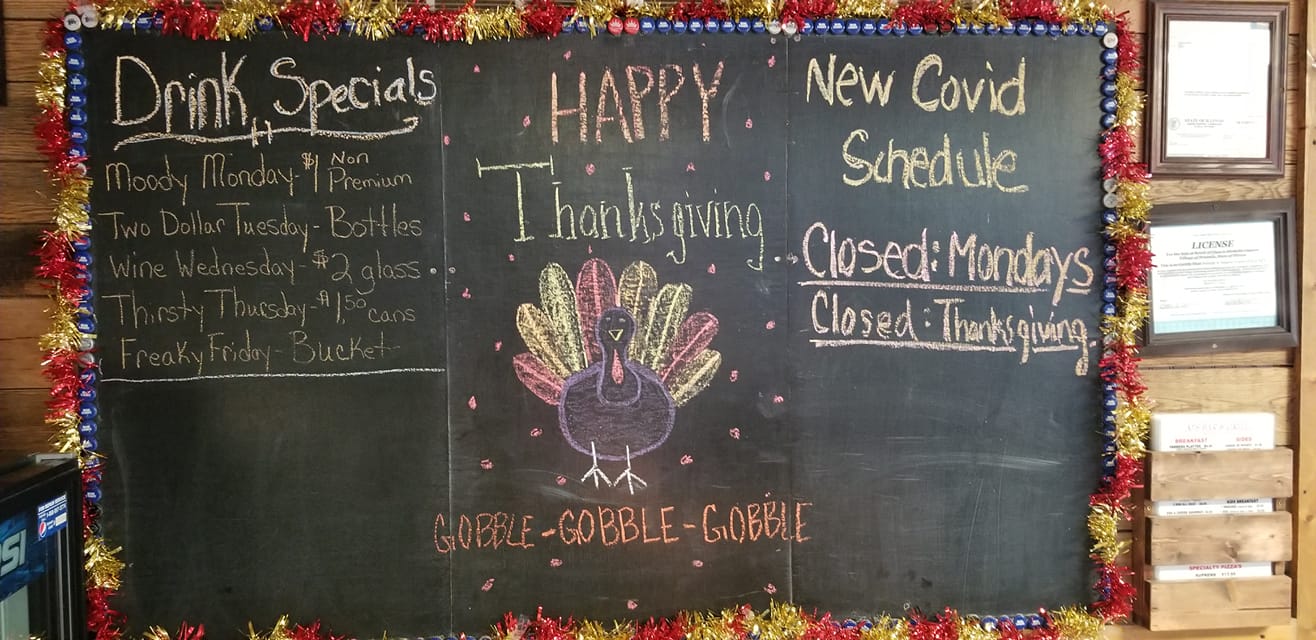 Drink Specials
Moody Monday - $1 Non Premium
Two Dollar Tuesday - Bottles
Wine Wednesday - $2 glass
Thirsty Thursday - $1.50 cans
Freaky Friday - Bucket
HAPPY
Thanksgiving
GOBBLE - GOBBLE - GOBBLE
New Covid
Schedule
Closed: Mondays
Closed: Thanksgiving
STATE OF ILLINOIS
LICENSE
BREAKFAST SIDES
KIDS BREAKFAST
SPECIALTY PIZZA'S
SUPREME
SI